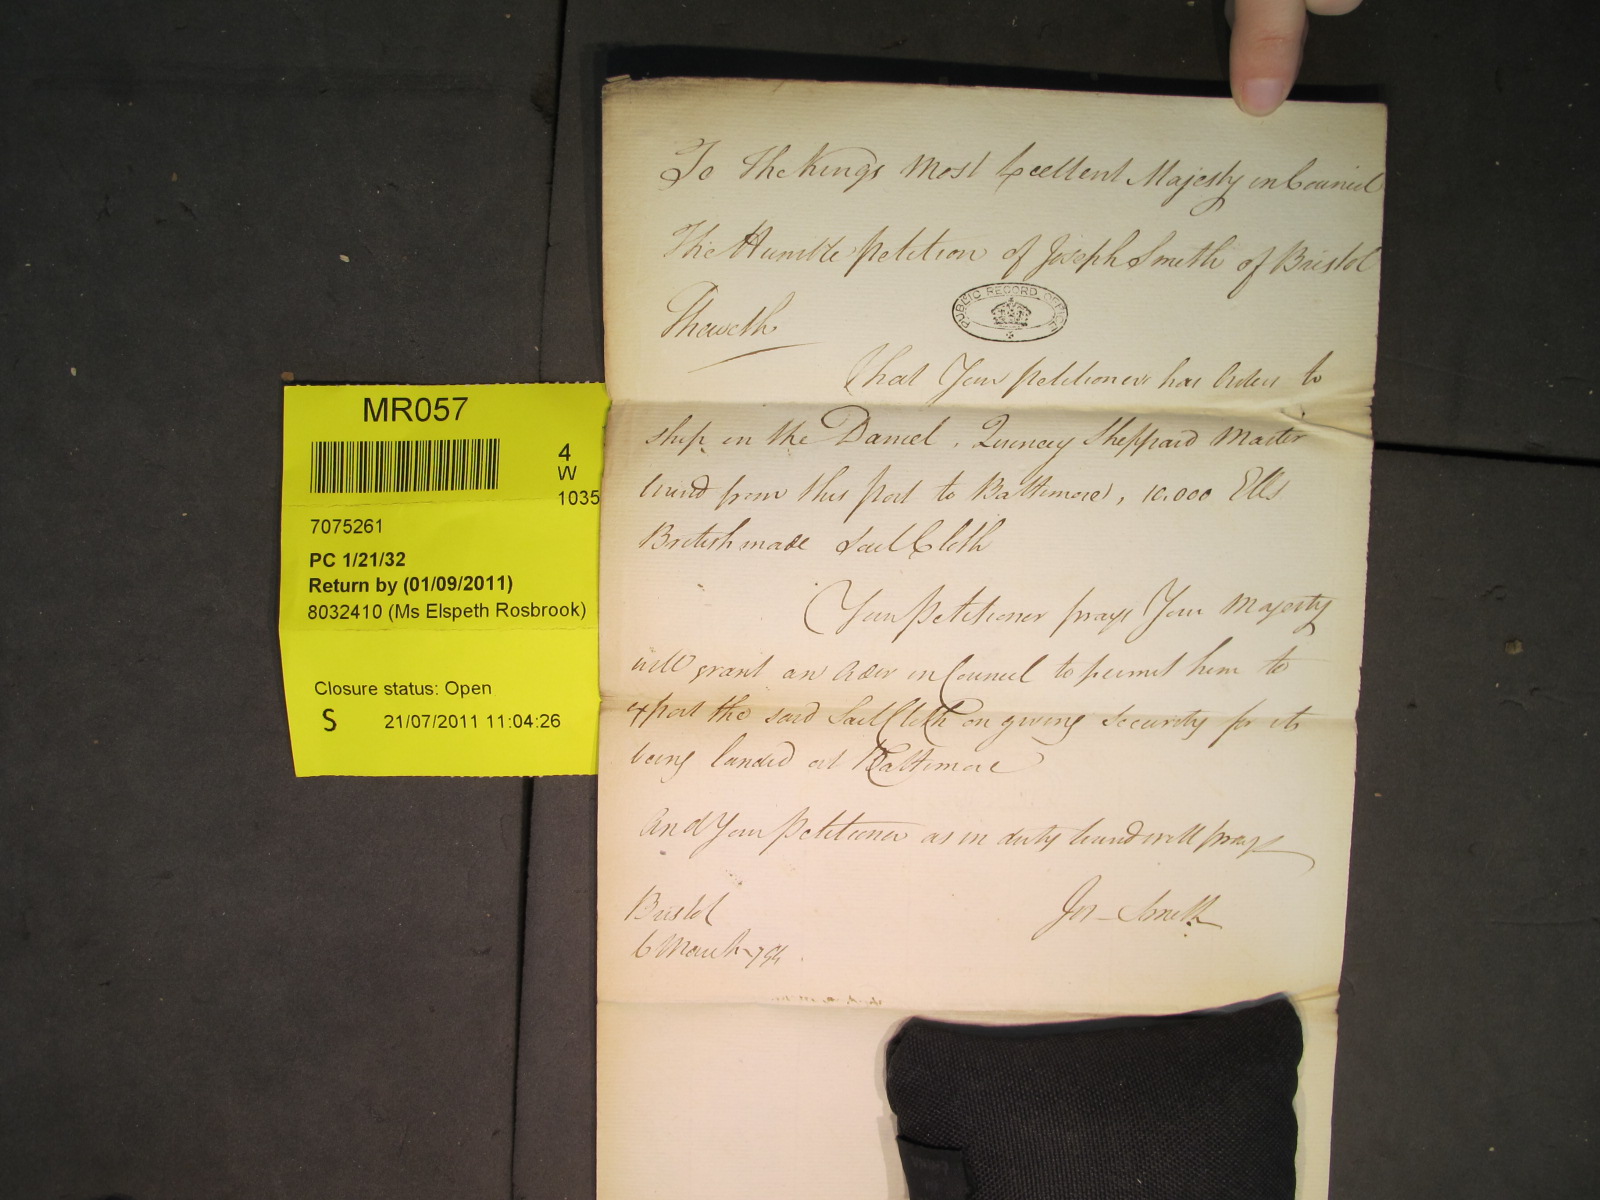 To The Kings Most Excellent Majesty in Council
The Humble petition of Joseph Smith of Bristol
PUBLIC RECORD OFFICE
Sheweth
That Your petitioner has Orders to
ship in the Daniel, Quincey Sheppard Master
bound from this port to Baltimore, 10.000 Ells
British made Sail Cloth
Your petitioner prays Your Majesty
will grant an Order in Council to permit him to
export the said Sail Cloth on giving security for its
being landed at Baltimore
And Your Petitioner as in duty bound will pray
Jos Smith
Bristol
6 March 794
MR057
4
W
1035
7075261
PC 1/21/32
Return by (01/09/2011)
8032410 (Ms Elspeth Rosbrook)
Closure status: Open
S 21/07/2011 11:04:26